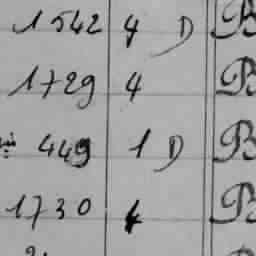 1542 4 D B
1729 4 B
449 1 D B
1730 4 B